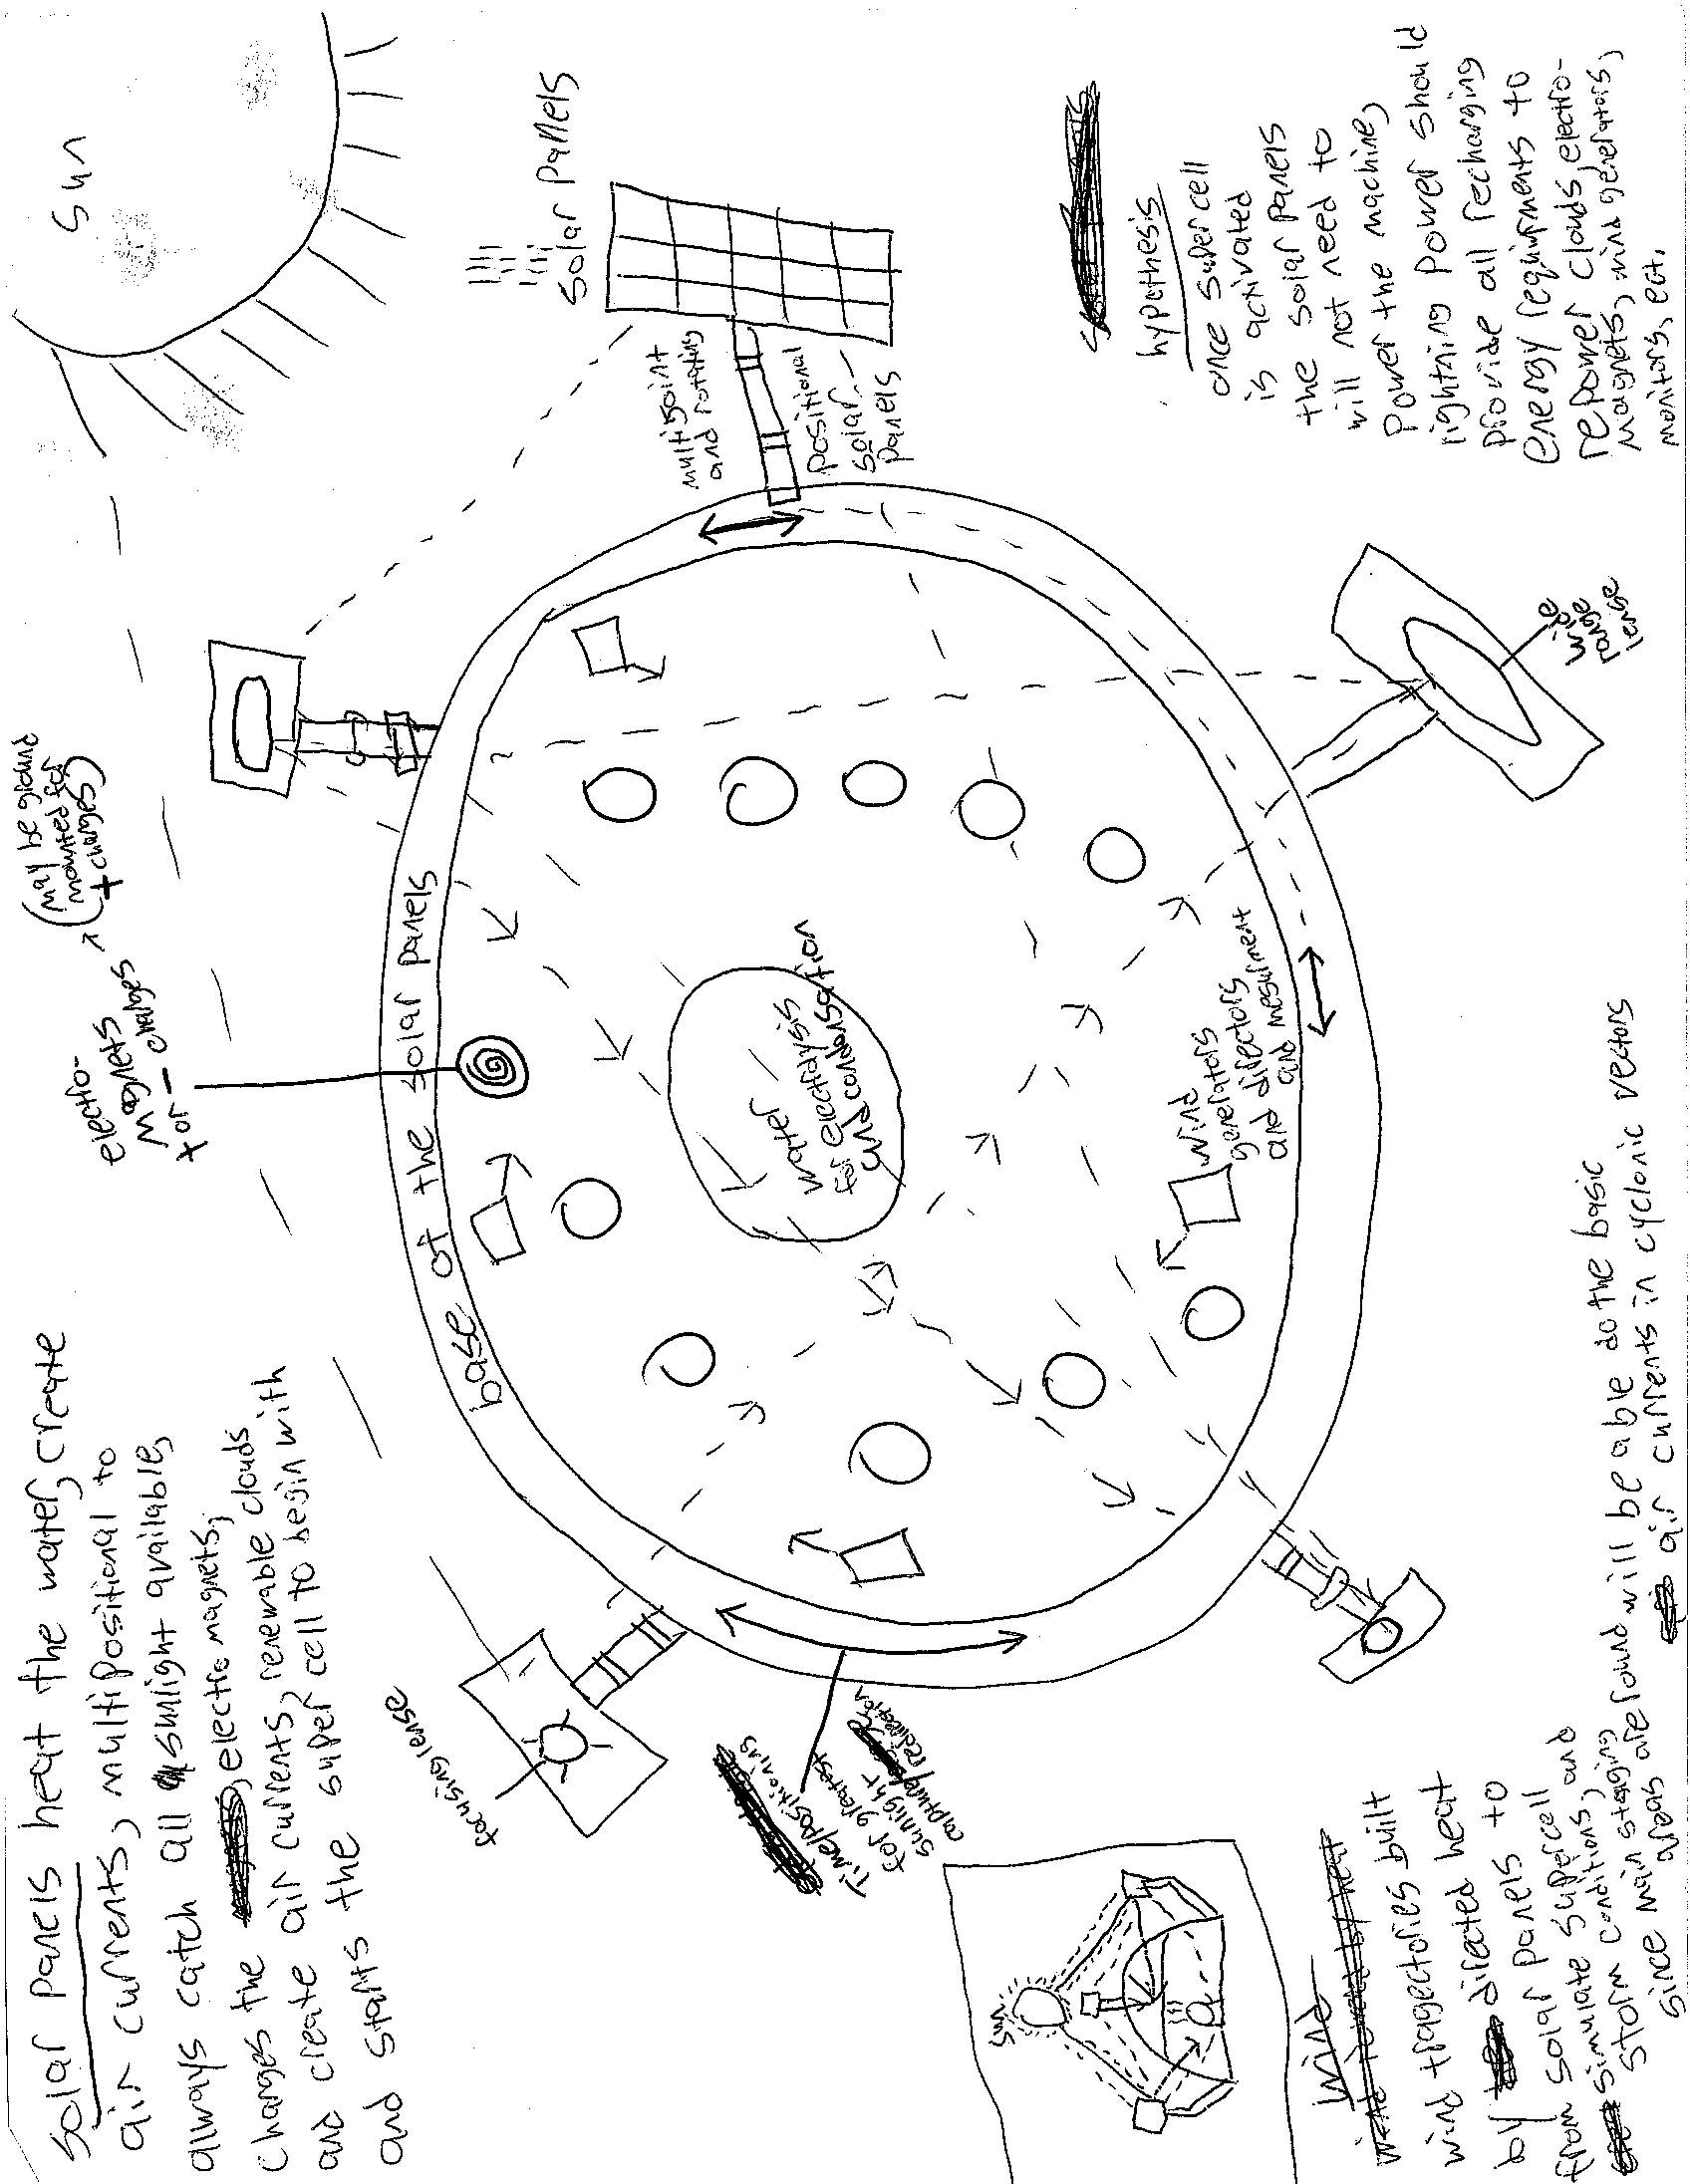 Solar Panels heat the water, create
air currents, multi positional to
always catch all sunlight available,
electro magnets,
changes the
and create air currents, renewable clouds
and starts the super cell to begin with
Sun
electro-
magnets
+ or - charges
(may be ground
mounted for
+ charges)
Solar Panels
multi joint
and rotating
positional
solar
panels
base of the solar panels
focusing lense
Time/positioning
for greatest
sunlight
capture/redirection
water
for electrolysis
and condensation
wind
generators
and directors
and mesurment
wide
range
lense
hypothesis
once super cell
is activated
the solar panels
will not need to
power the machine,
lightning power should
provide all recharging
energy requirments to
repower clouds, electro-
magnets, wind generators,
monitors, ect.
Sun
wind
wind traggectories built
wind directed heat
by directed to
by solar panels to
from solar supercell
simulate supercell and
storm conditions, and
storm main staging
since main areas are found will be able do the basic
air currents in cyclonic vectors